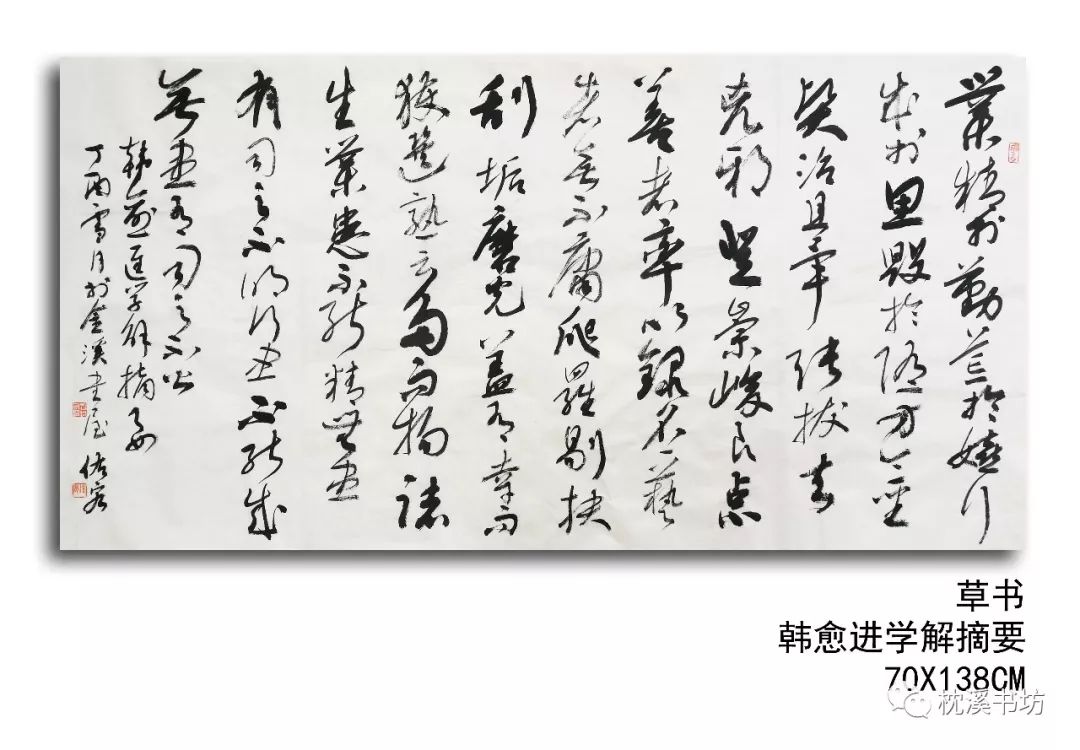 業精於勤荒於嬉行
成於思毀於隨方今聖
賢治具畢張拔去
兇邪登崇畯良占
善者率以錄名一藝
者無不庸爬羅剔抉
刮垢磨光蓋有幸而
獲選熟云多而揚諸
生業患不能精無患
有司之不明行患不能成
無患有司之不公
韓愈進學解摘要
丁酉雪月於金溪書屋
草书
韩愈进学解摘要
70X138CM
枕溪书坊